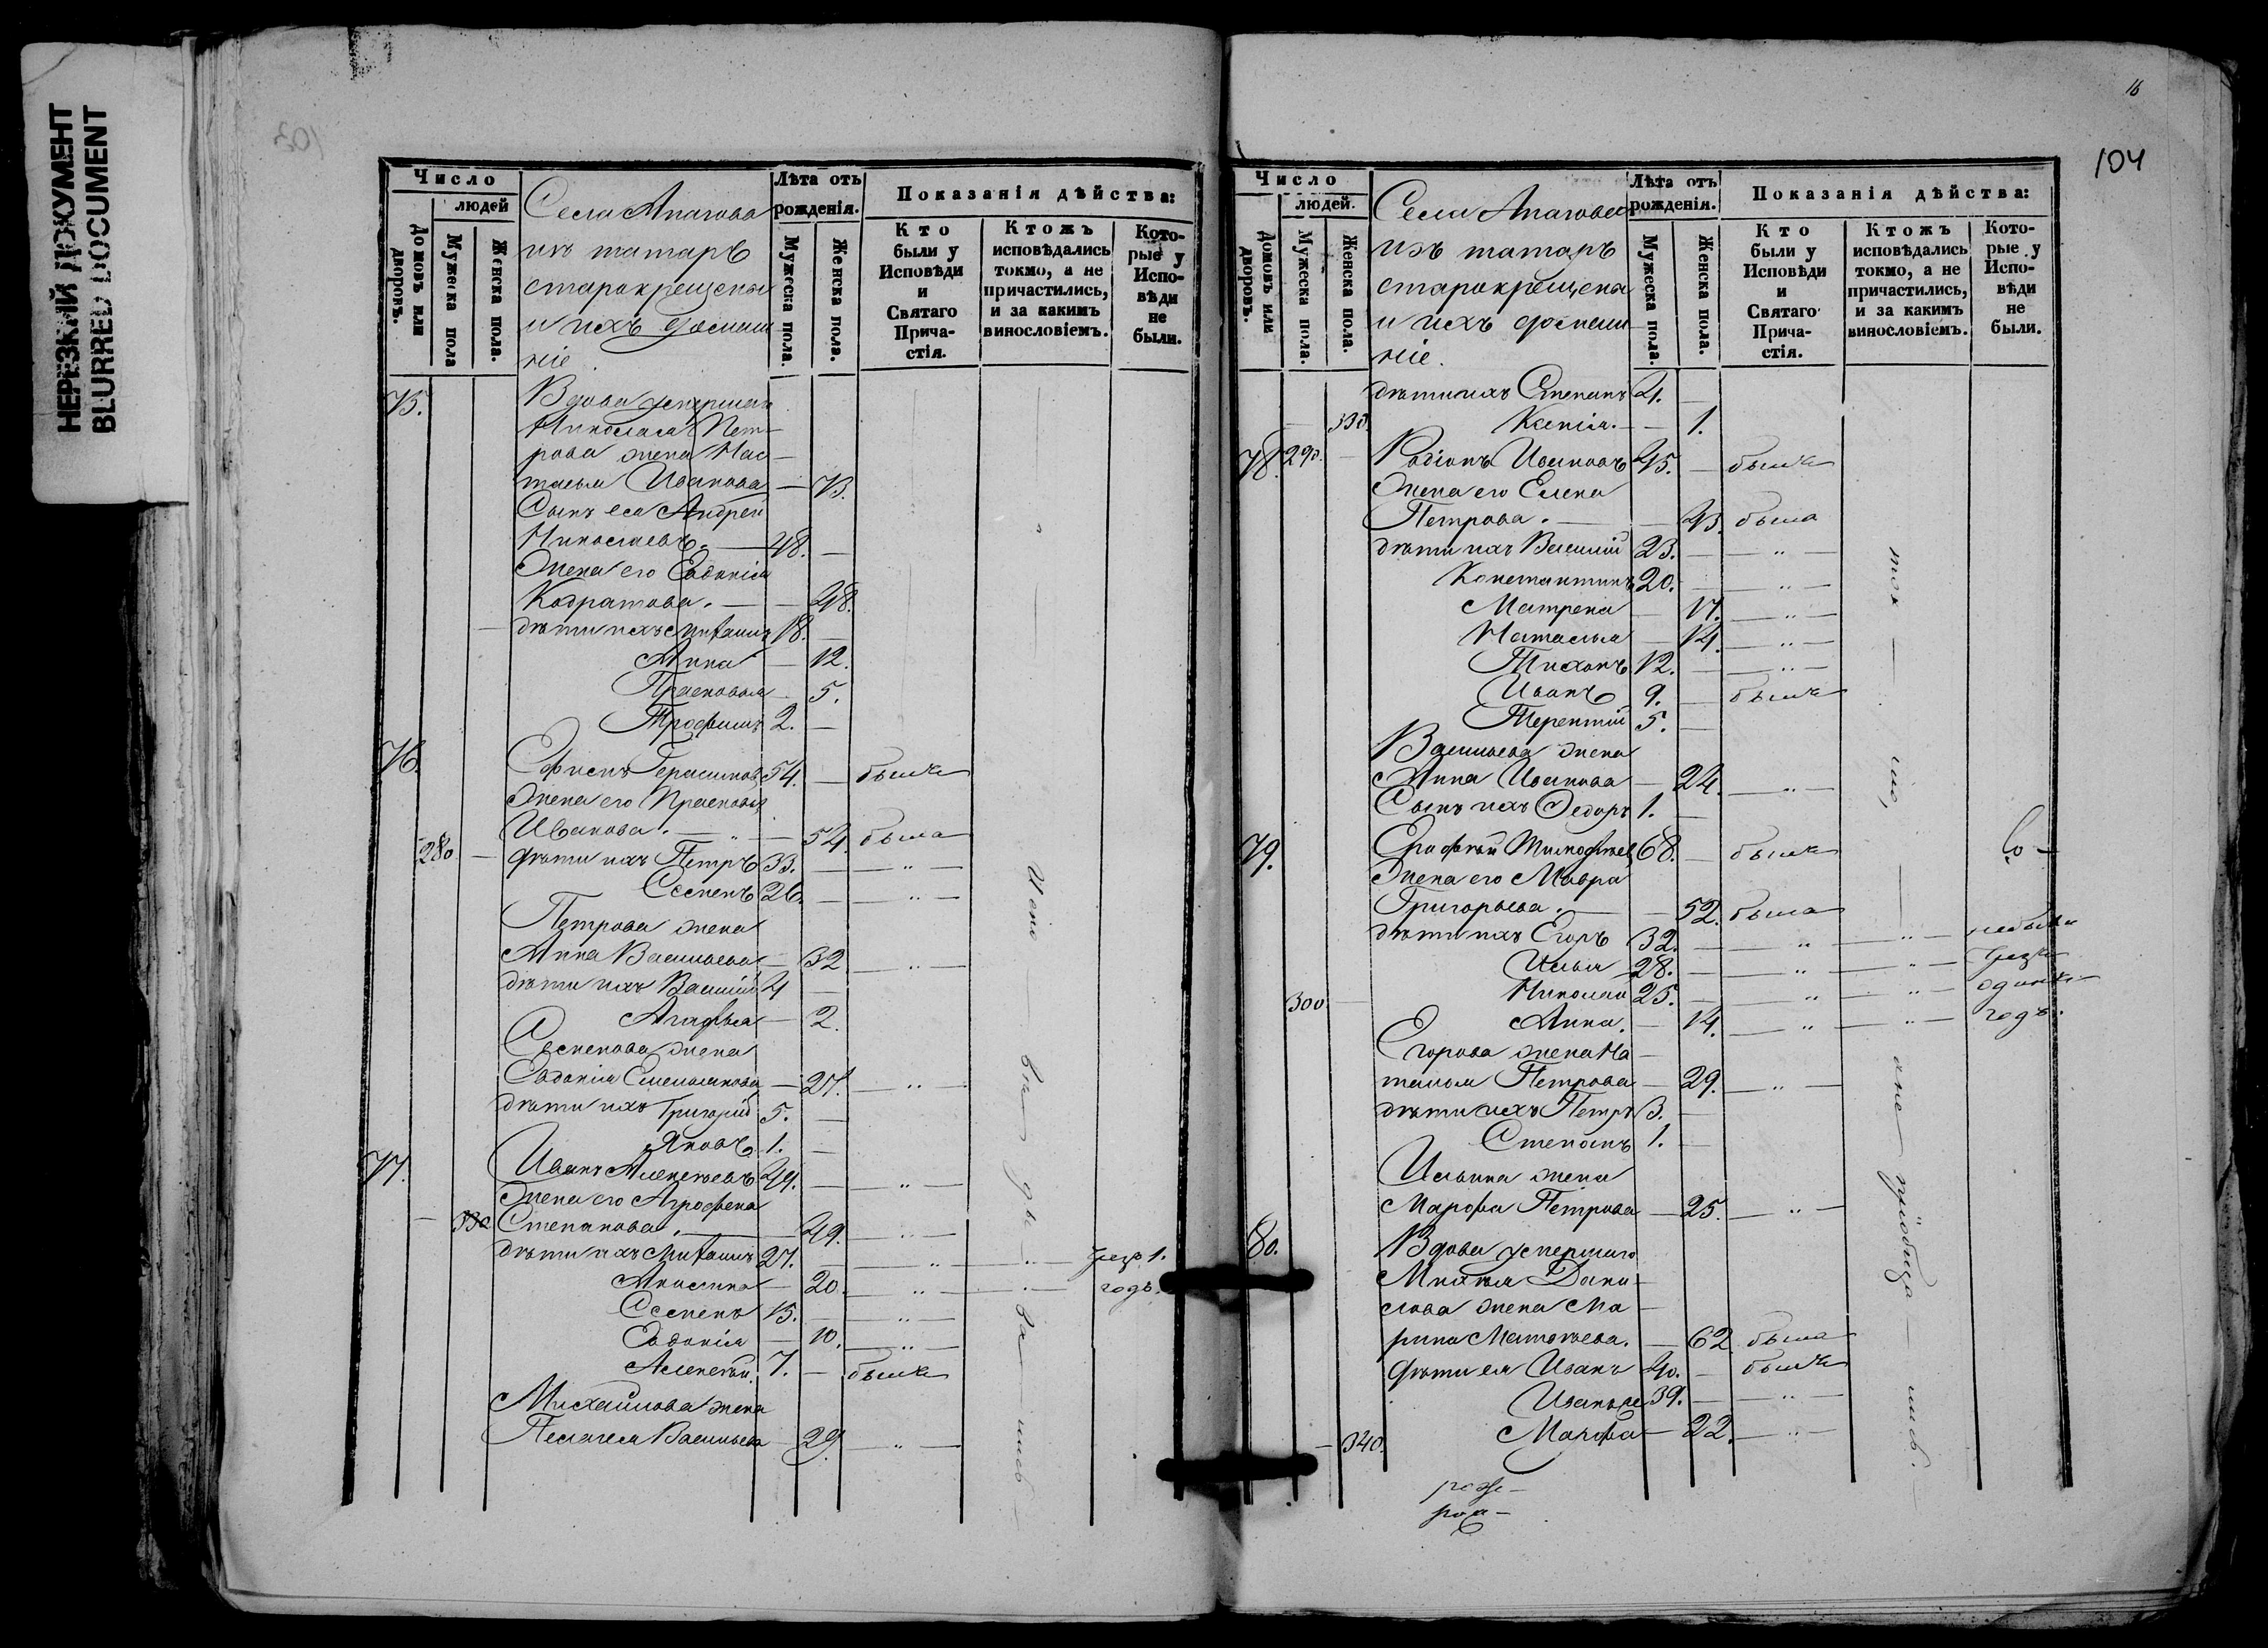 НЕРЕЗКИЙ ДОКУМЕНТ
BLURRED DOCUMENT
103
Число
людей
Домовъ или дворовъ.
Мужеска пола
Женска пола.
Села Апагова
изъ татаръ
старокрещены
и ихъ домаш
ніе
Лѣта отъ рожденія.
Мужеска пола.
Женска пола.
Показанія дѣйства:
Кто были у Исповѣди и Святаго Причастія.
Ктожъ исповѣдались токмо, а не причастились, и за какимъ винословіемъ.
Которые у Исповѣди не были.
75. Вдова умершаго
Николая Пет-
рова жена Нас-
тасья Иванова — 73.
Сынъ ея Андрей
Николаевъ. — 48. —
Жена его Евдокія
Кодратова. — — 48.
дѣти ихъ Михаилъ 18. —
Анна — 12.
Прасковья — 5.
Трофимъ 2. —
76. Герасимовъ 54. — былъ
Жена его Прасковья
Иванова. — „ — 54. была
280 — дѣти ихъ Петръ 33. — „ —
Есепъ 26. — „ —
Петрова жена
Анна Васильева — 32 — „ —
дѣти ихъ Василій 4 —
Агафья — 2.
Есепова жена
Евдокія Емельянова — 27. — „ —
дѣти ихъ Григорій 5. —
Яковъ 1. —
77. Иванъ Алексѣевъ 49. — „ —
Жена его Агрофена
— 330 Степанова. — 49. — „ —
дѣти ихъ Михаилъ 27. — „ — „ — чрезъ 1.
Акилина — 20. — „ — „ — годъ.
Есепъ 15. — „ —
Евдокія — 10. — „ —
Алексѣй. 7. — былъ
Михайлова жена
Пелагея Васильева — 29. — „ —
16
104
Число
людей.
Домовъ или дворовъ.
Мужеска пола.
Женска пола.
Села Апагова
изъ татаръ
старокрещены
и ихъ домаш
ніе.
Лѣта отъ рожденія.
Мужеска пола.
Женска пола.
Показанія дѣйства:
Кто были у Исповѣди и Святаго Причастія.
Ктожъ исповѣдались токмо, а не причастились, и за какимъ винословіемъ.
Которые у Исповѣди не были.
дѣти ихъ Степанъ 4. —
— 330. Ксенія. — 1.
78. 290. — Родіонъ Ивановъ 45. — былъ
Жена его Елена
Петрова. — — 43. была
дѣти ихъ Василій 23. — „ —
Константинъ 20. — „ —
Матрена — 17. — „ —
Наталья — 14. — „ —
Тихонъ 12. — „ —
Иванъ 9. — былъ
Терентій 5. —
Васильева жена
Анна Иванова — 24. — „ —
Сынъ ихъ Ѳедоръ 1. —
79. Ерофей Тимофѣев 68. — былъ
Жена его Мавра
Григорьева. — — 52. была
дѣти ихъ Егоръ 32. — „ — „ — небыл
Илья 28. — „ — „ — чрезъ
300 — Николай 25. — „ — „ — одинъ
Анна. — 14. — „ — „ — годъ.
Егорова жена На-
талья Петрова — 29. — „ —
дѣти ихъ Петръ 3. —
Степанъ 1. —
Ильина жена
Марфа Петрова — 25. — „ —
80. Вдова умершаго
Михѣя Дани-
лова жена Ма-
рина Матвѣева. — 62 была
дѣти ея Иванъ 40. — былъ
Иванъ же 39. — „ —
— 340. Марфа — 22. — „ —